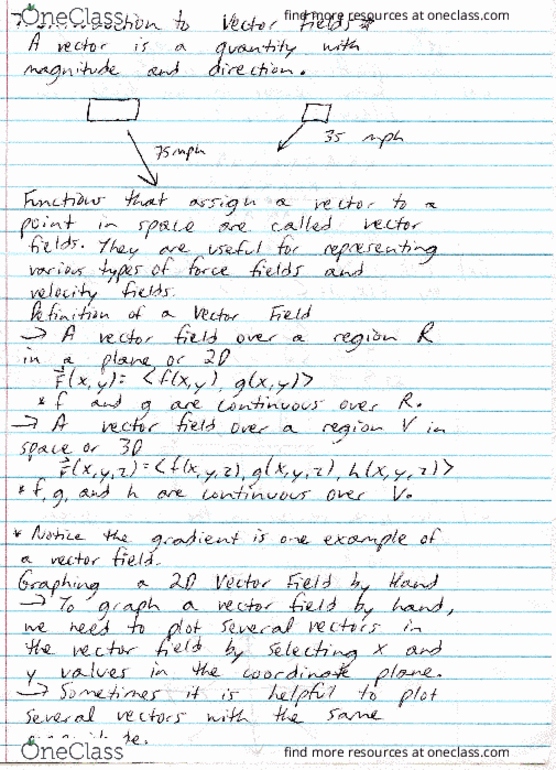 OneClass
find more resources at oneclass.com
to Vector Fields *
A vector is a quantity with
magnitude and direction.
75 mph
35 mph
Functions that assign a vector to a
point in space are called vector
fields. They are useful for representing
various types of force fields and
velocity fields.
Definition of a Vector Field
→ A vector field over a region R
in a plane or 2D
F⃗(x,y)= <f(x,y), g(x,y)>
* f and g are continuous over R.
→ A vector field over a region V in
space or 3D
F⃗(x,y,z)=<f(x,y,z), g(x,y,z), h(x,y,z)>
* f, g, and h are continuous over V.
* Notice the gradient is one example of
a vector field.
Graphing a 2D Vector Field by Hand
→ To graph a vector field by hand,
we need to plot several vectors in
the vector field by selecting x and
y values in the coordinate plane.
→ Sometimes it is helpful to plot
several vectors with the same
OneClass
find more resources at oneclass.com